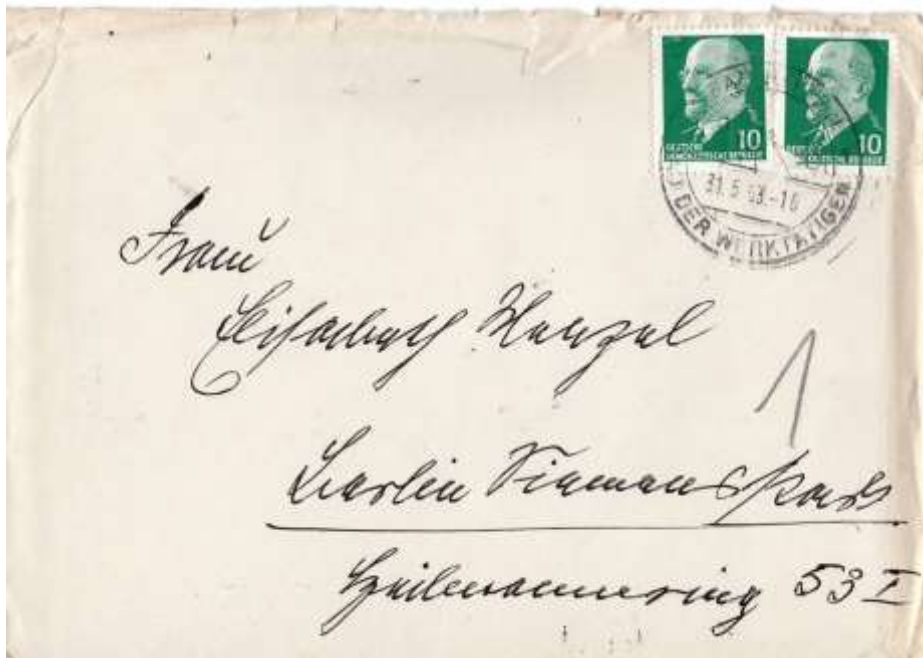 10 10
DEUTSCHE DEMOKRATISCHE REPUBLIK DEUTSCHE DEMOKRATISCHE REPUBLIK
31.5.63.-16
DER WERKTÄTIGEN
Frau
Elisabeth
1
Berlin Siemensstadt
Heilmannring 53 I